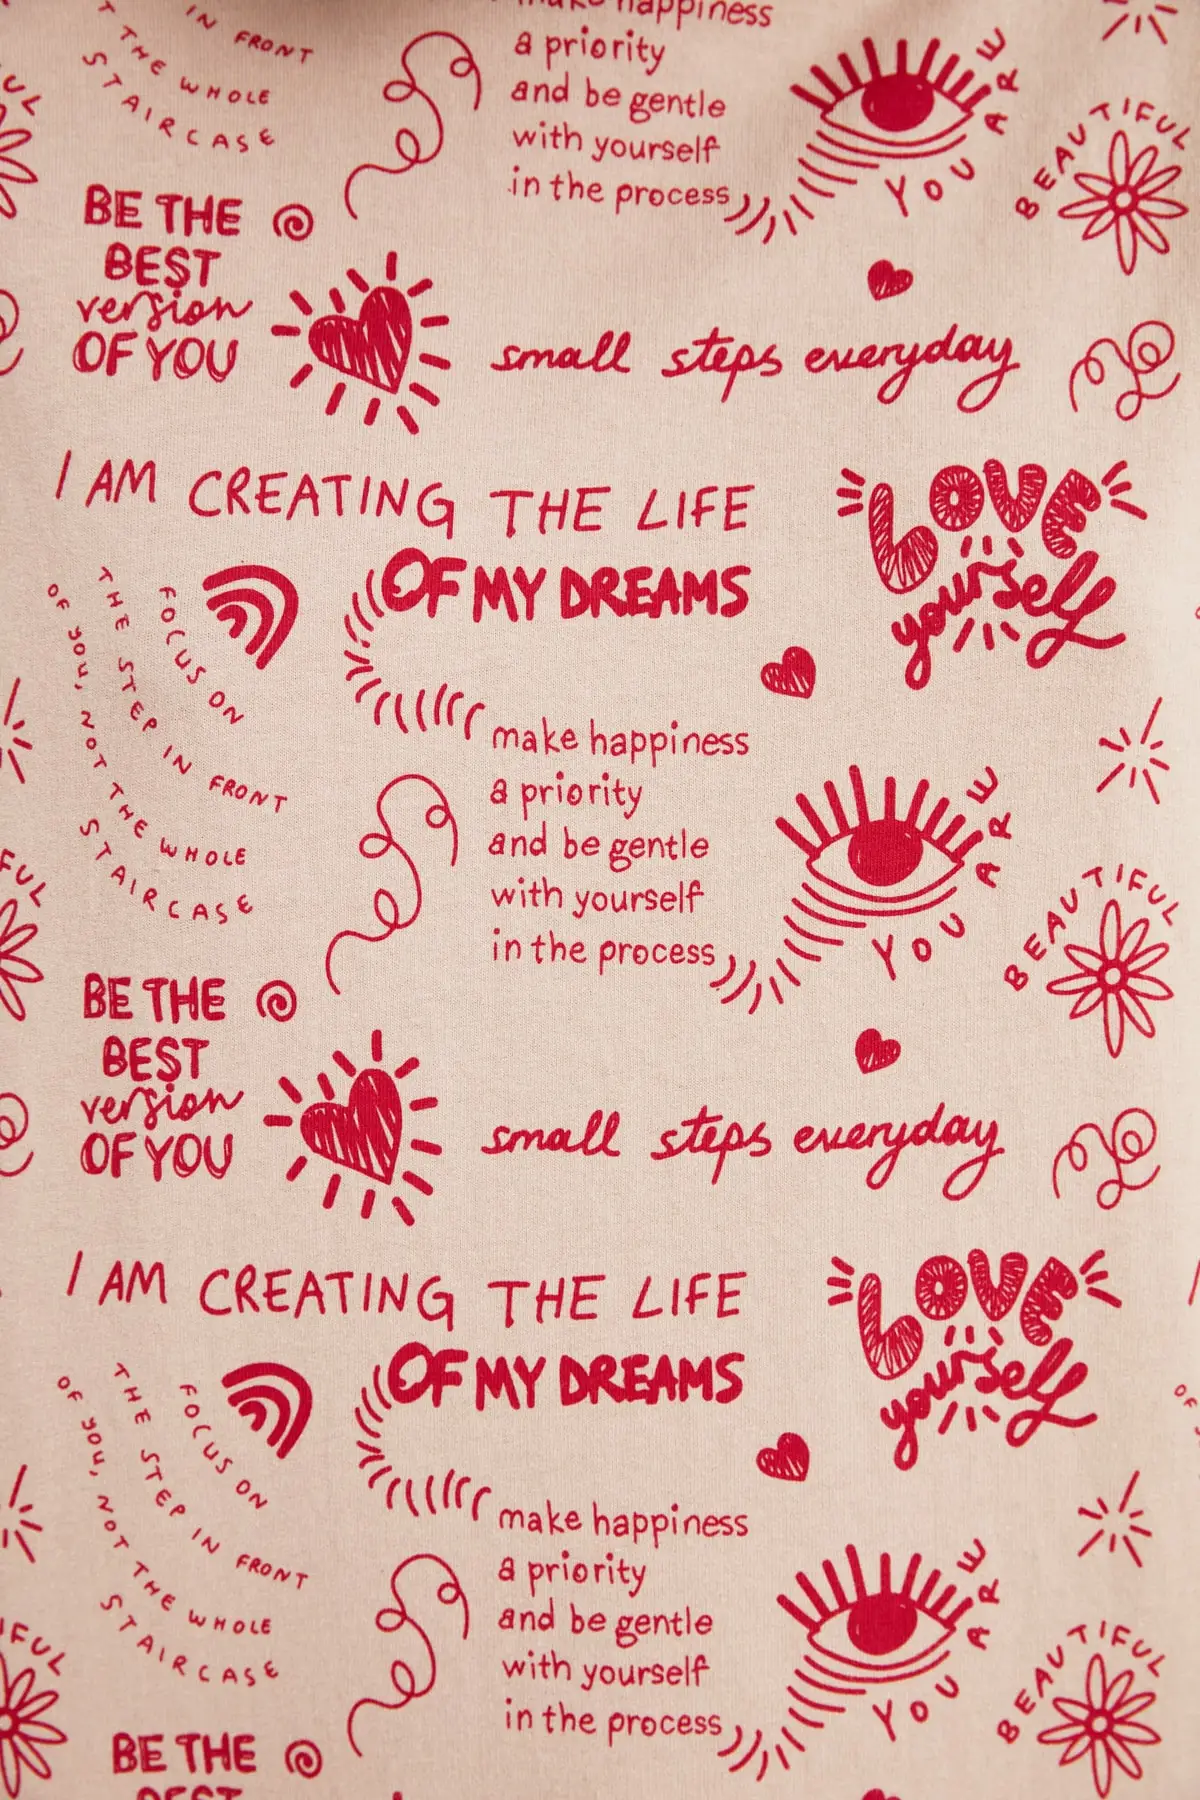 make happiness
IN FRONT
THE WHOLE
STAIRCASE
a priority
and be gentle
with yourself
in the process
YOU ARE
BEAUTIFUL
BE THE
BEST
version
OF YOU
small steps everyday
I AM CREATING THE LIFE
OF MY DREAMS
LOVE
yourself
FOCUS ON
THE STEP IN FRONT
OF YOU, NOT THE WHOLE
STAIRCASE
make happiness
a priority
and be gentle
with yourself
in the process
YOU ARE
BEAUTIFUL
BE THE
BEST
version
OF YOU
small steps everyday
I AM CREATING THE LIFE
OF MY DREAMS
LOVE
yourself
FOCUS ON
THE STEP IN FRONT
OF YOU, NOT THE WHOLE
STAIRCASE
make happiness
a priority
and be gentle
with yourself
in the process
YOU ARE
BEAUTIFUL
BE THE
BEST